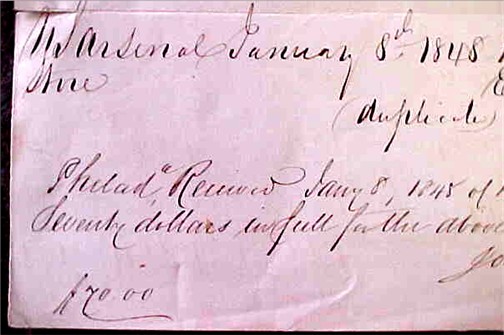 Arsenal January 8th 1848
(duplicate)
Philada, Received Jany 8, 1848 of
Seventy dollars in full for the above
Jo
$70.00